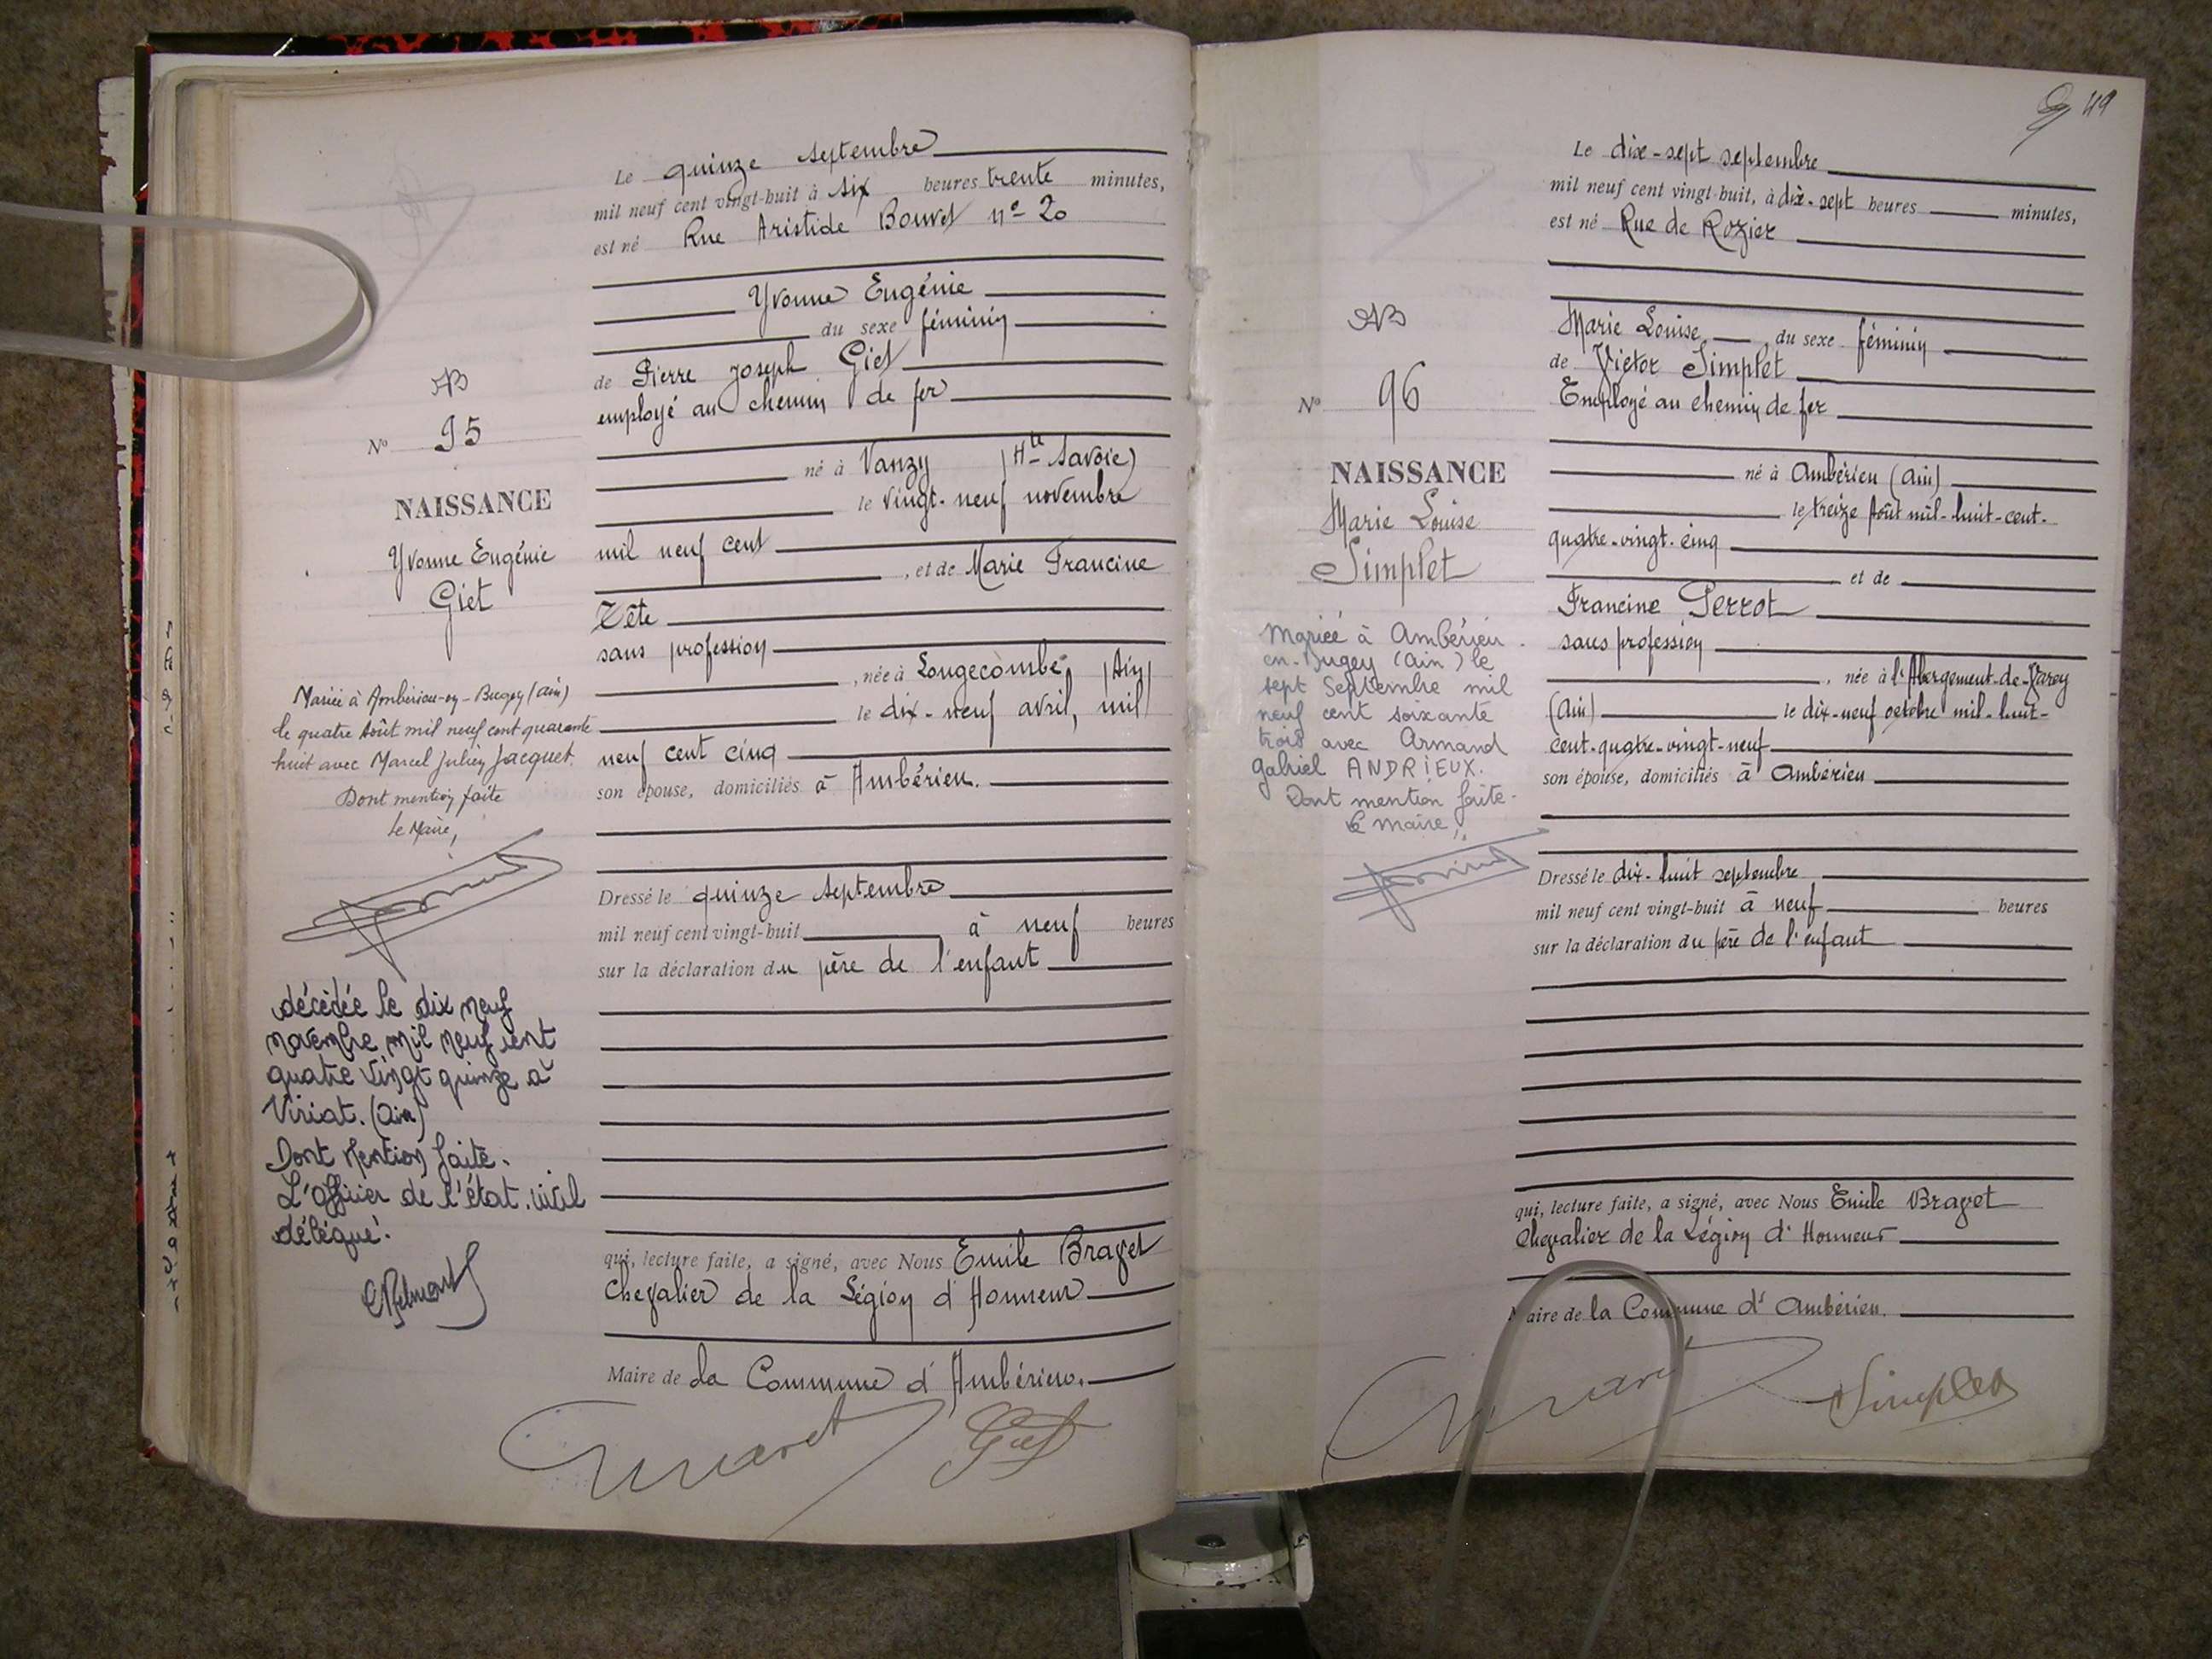 Le quinze septembre
mil neuf cent vingt-huit à six heures trente minutes,
est né Rue Aristide Bouvet n° 20
Yvonne Eugénie
du sexe féminin
de Pierre Joseph Giet
employé au chemin de fer
né à Vanzy (Hte Savoie)
le vingt-neuf novembre
mil neuf cent
, et de Marie Francine
Tête
sans profession
, née à Longecombe (Ain)
le dix-neuf avril, mil
neuf cent cinq
son épouse, domiciliés à Ambérieu.
Dressé le quinze septembre
mil neuf cent vingt-huit à neuf heures
sur la déclaration du père de l'enfant
qui, lecture faite, a signé, avec Nous Emile Bravet
Chevalier de la Légion d'Honneur
Maire de la Commune d'Ambérieu.
Giet
N° 95
NAISSANCE
Yvonne Eugénie
Giet
Mariée à Ambérieu-en-Bugey (Ain)
le quatre Août mil neuf cent quarante
huit avec Marcel Julien Jacquet.
Dont mention faite
Le Maire,
décédée le dix neuf
novembre mil neuf cent
quatre vingt quinze à
Viriat. (Ain)
Dont Mention faite.
L'officier de l'état. civil
délégué.
49
Le dix-sept septembre
mil neuf cent vingt-huit, à dix-sept heures minutes,
est né Rue de Rozier
Marie Louise du sexe féminin
de Victor Simplet
Employé au chemin de fer
né à Ambérieu (Ain)
le treize Août mil-huit-cent-
quatre-vingt-cinq
et de
Francine Perrot
sans profession
, née à l'Abergement-de-Varey
(Ain) le dix-neuf octobre mil-huit-
cent-quatre-vingt-neuf
son épouse, domiciliés à Ambérieu
Dressé le dix-huit septembre
mil neuf cent vingt-huit à neuf heures
sur la déclaration du père de l'enfant
qui, lecture faite, a signé, avec Nous Emile Bravet
Chevalier de la Légion d'Honneur
Maire de la Commune d'Ambérieu.
Simplet
N° 96
NAISSANCE
Marie Louise
Simplet
Mariée à Ambérieu-
en-Bugey (Ain) le
sept Septembre mil
neuf cent soixante
trois avec Armand
Gabriel ANDRIEUX.
Dont mention faite-
Le maire,